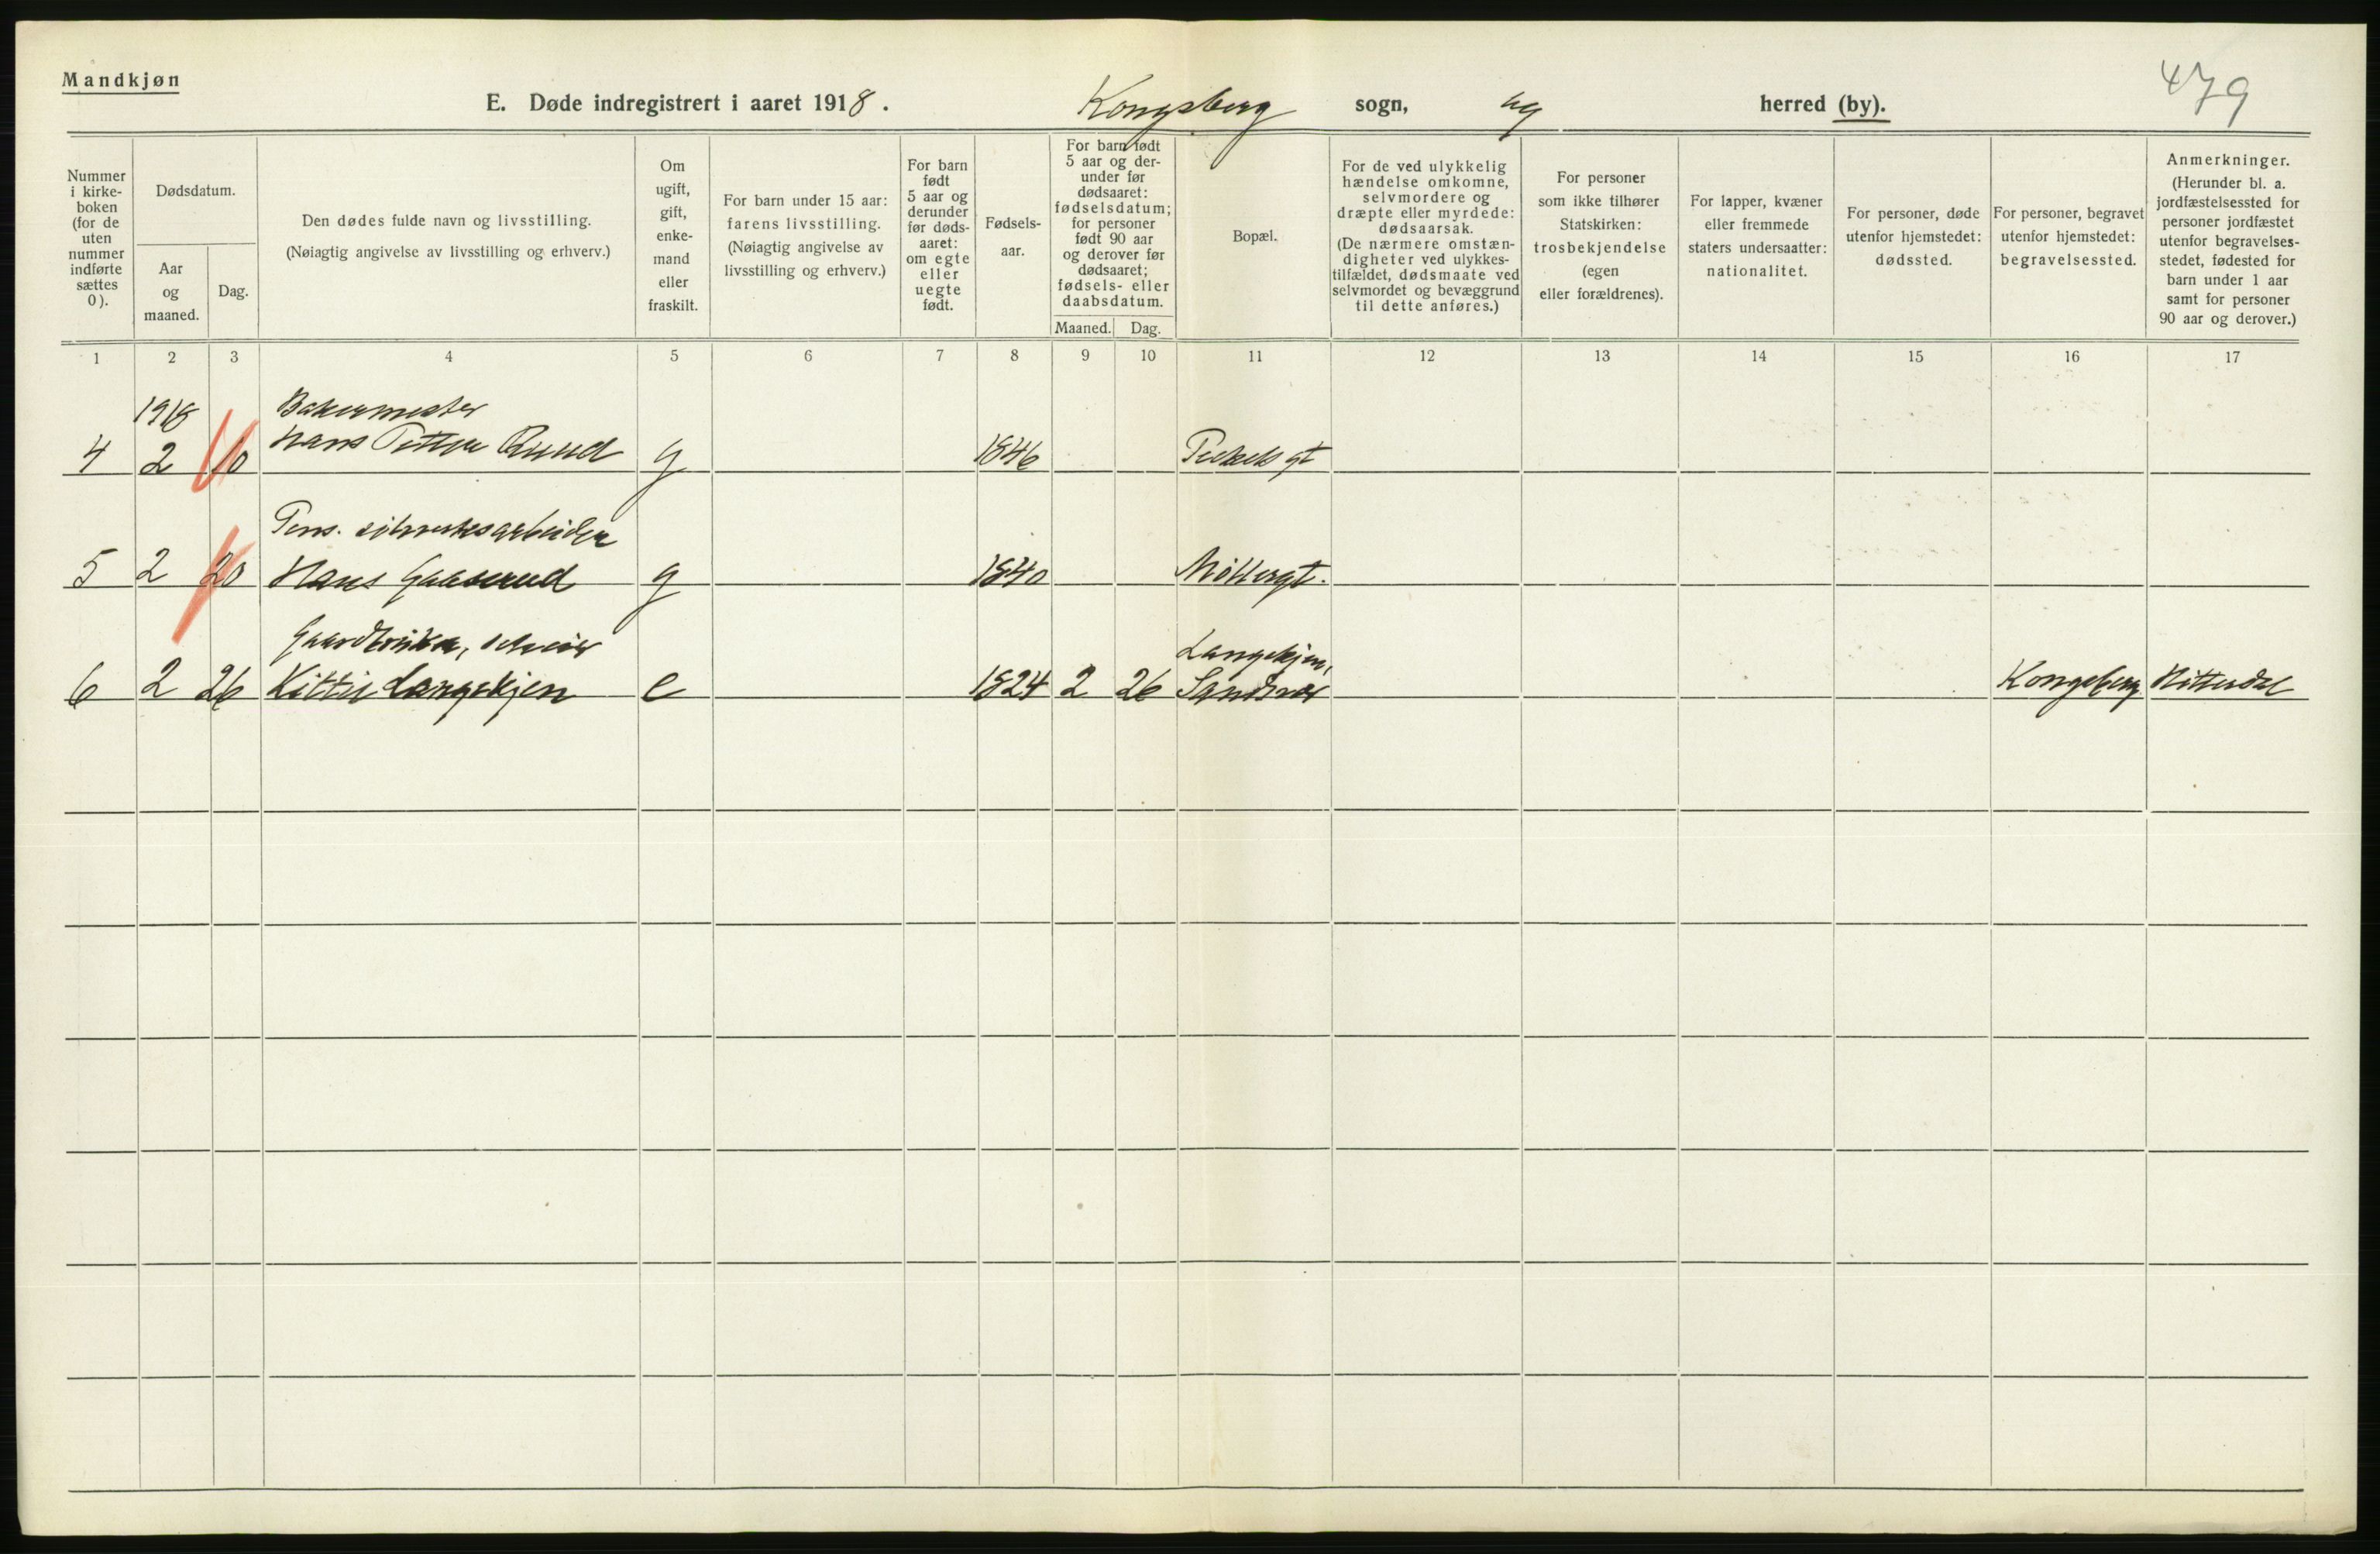 Mandkjøn
479
E. Døde indregistrert i aaret 1918. Kongsberg sogn, og herred (by).
Nummer i kirke-boken (for de uten nummer indførte sættes 0).
Dødsdatum.
Aar og maaned.
Dag.
Den dødes fulde navn og livsstilling.
(Nøiagtig angivelse av livsstilling og erhverv.)
Om ugift, gift, enke-mand eller fraskilt.
For barn under 15 aar: farens livsstilling.
(Nøiagtig angivelse av livsstilling og erhverv.)
For barn født 5 aar og derunder før døds-aaret: om egte eller uegte født.
Fødsels-aar.
For barn født 5 aar og der-under før dødsaaret: fødselsdatum; for personer født 90 aar og derover før dødsaaret; fødsels- eller daabsdatum.
Maaned. Dag.
Bopæl.
For de ved ulykkelig hændelse omkomne, selvmordere og dræpte eller myrdede: dødsaarsak.
(De nærmere omstæn-digheter ved ulykkes-tilfældet, dødsmaate ved selvmordet og bevæggrund til dette anføres.)
For personer som ikke tilhører Statskirken: trosbekjendelse (egen eller forældrenes).
For lapper, kvæner eller fremmede staters undersaatter: nationalitet.
For personer, døde utenfor hjemstedet: dødssted.
For personer, begravet utenfor hjemstedet: begravelsessted.
Anmerkninger.
(Herunder bl. a. jordfæstelsessted for personer jordfæstet utenfor begravelses-stedet, fødested for barn under 1 aar samt for personer 90 aar og derover.)
1 2 3 4 5 6 7 8 9 10 11 12 13 14 15 16 17
1918 Bakermester
4 2 10 Hans Petter Ruud g 1846 gt
Pens. sølvverksarbeider
5 2 20 Hans g 1840 Møllergt.
Gaardbruker, Langekjen,
6 2 26 Kittil Langekjen e 1824 2 26 Sandsvær Kongsberg Hitterdal